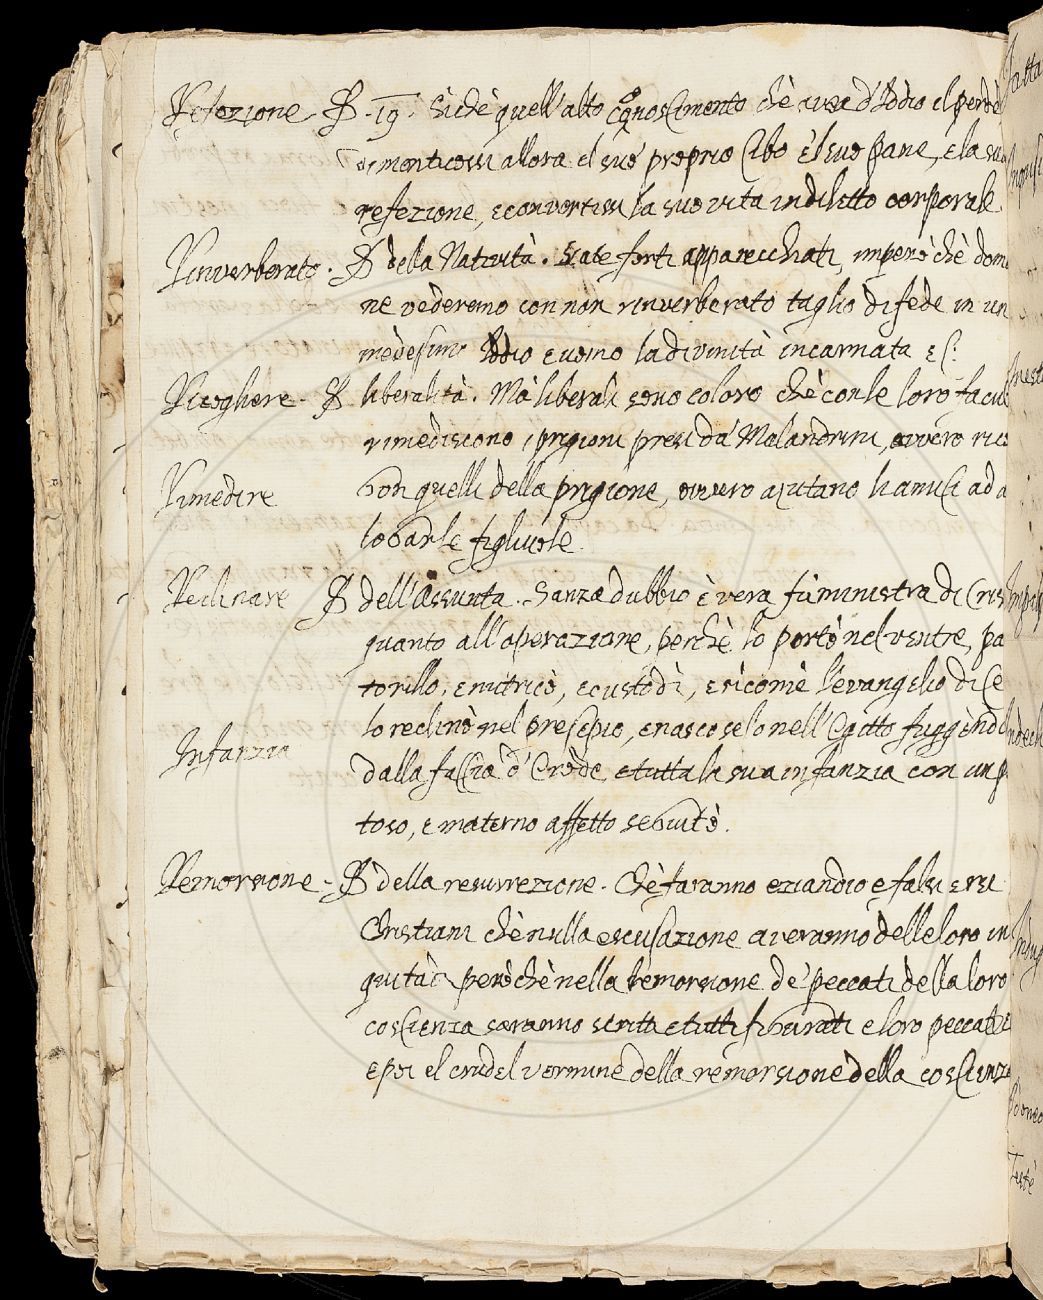 Refezione - P. 19. Sichè quell'alto conoscimento chè avea d'Iddio el perdè
dimenticossi allora el suo proprio cibo e'l suo pane, e la sua
refezione, e convertissi la sua vita in diletto corporale
Rinverberato. P. della Natività. Siate forti apparecchiati, imperò chè doma
ne vederemo con non rinverberato taglio di fede in un
medesimo Iddio e uomo la divinità incarnata ec.
Ricoghere - P. liberalità. Mà liberali sono coloro chè con le loro facul
rimediscono i prigioni presi da' Malandrini, ovvero rico
Rimedire
gon quelli della prigione, ovvero ajutano li amici ad a
logar le figliuole.
Reclinare P. dell'Assunta. Sanza dubbio è vera fù ministra di Cris
quanto all'operazione, perchè lo portò nel ventre, pa
torillo, e nutricò, e custodì, e sicome l'evangelio dice
lo reclinò nel presepio, e nascoselo nell'Egitto fuggendo
Infanzia
dalla faccia d'Erode, e tutta la sua infanzia con un p
toso, e materno affetto seguitò.
Remorsione - P. della resurrezione. Chè faranno eziandio e falsi e rei
Christiani chè nulla escusazione averanno delle loro ini
quità, però chè nella remorsione de' peccati della loro
coscienza saranno scritti e tutti figurati e loro peccati
e poi el crudel vermine della remorsione della coscienza